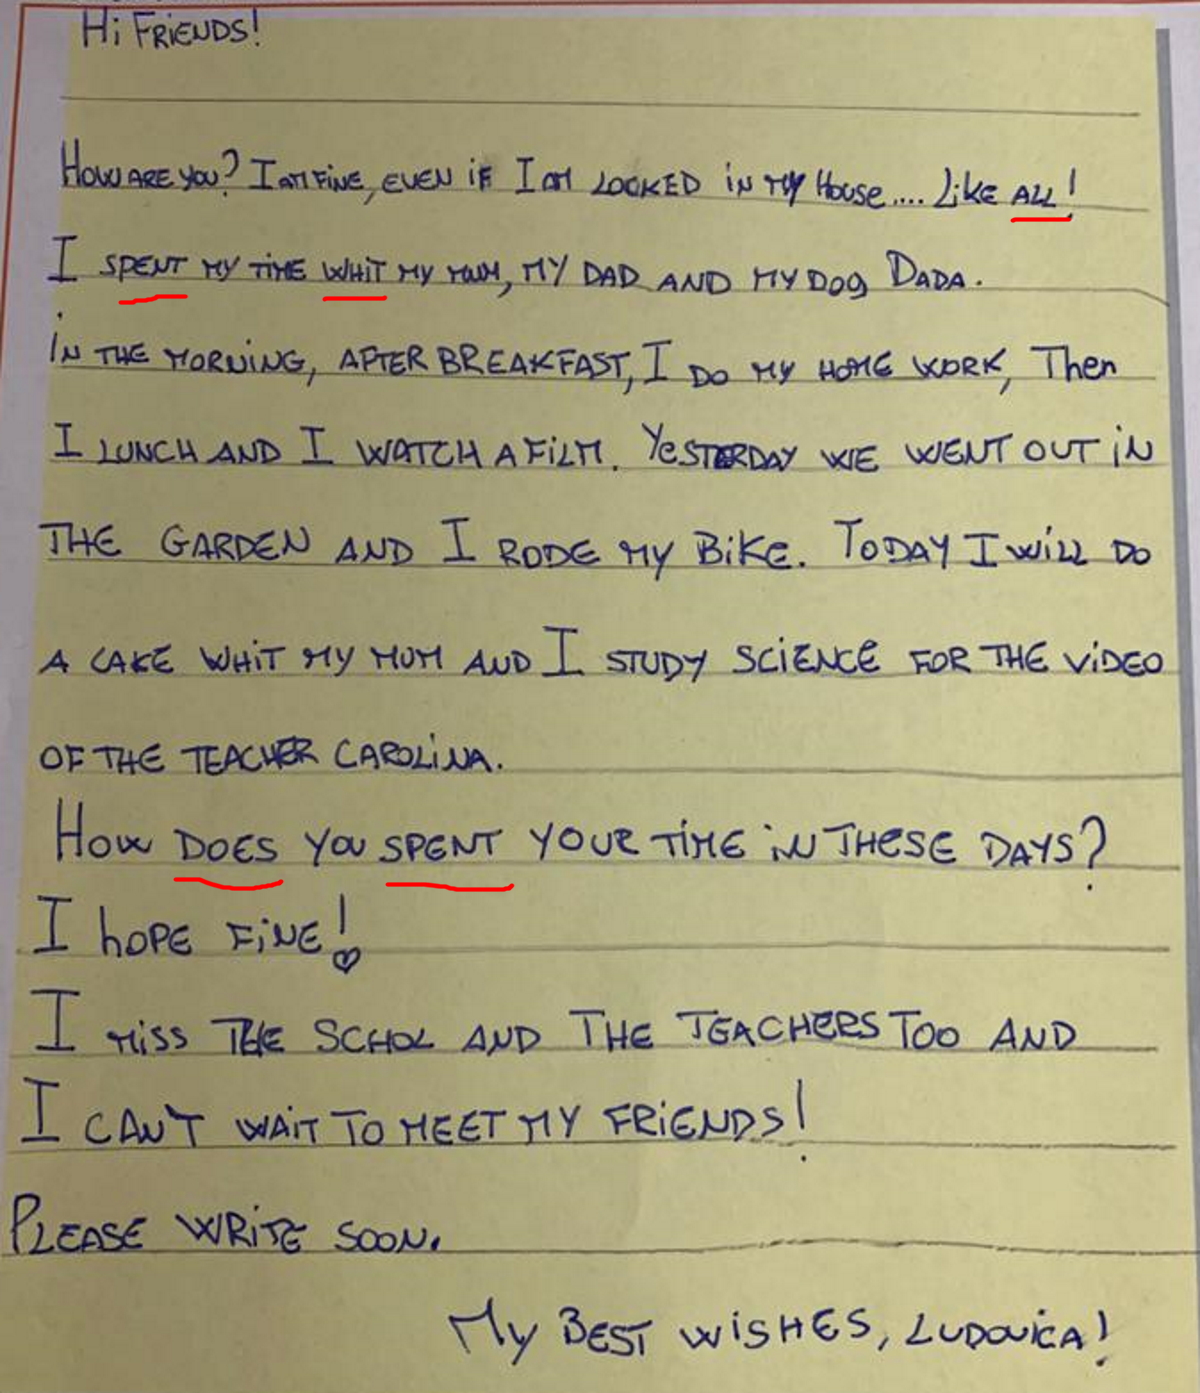 Hi FRiENDS!
HOW ARE YOU? I AM FINE, EVEN iF I AM LOOKED iN MY House.... LiKE ALL!
I SPENT MY TiME WHiT MY MUM, MY DAD AND MY DOg DADA.
iN THE MORNiNG, AFTER BREAKFAST, I DO MY HOME WORK, Then
I LUNCH AND I WATCH A FiLM. YeSTERDAY WE WENT OUT iN
THE GARDEN AND I RODE MY BiKe. TODAY I WiLL DO
A CAKE WHiT MY MUM AND I STUDY SCiENCE FOR THE ViDEO
OF THE TEACHER CAROLiNA.
HOW DOES YOU SPENT YOUR TiME iN THESE DAYS?
I hOPE FiNE!
I MiSS THE SCHOL AND THE TEACHERS TOO AND
I CAN'T WAiT TO MEET MY FRiENDS!
PLEASE WRiTE SOON.
My BEST WiSHES, LUDOViCA!